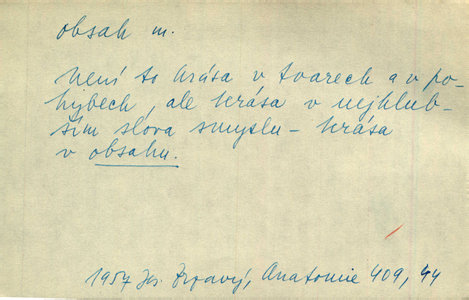 obsah m.
Není to krása v tvarech a v po-
hybech, ale krása v nejhlub-
ším slova smyslu – krása
v obsahu.
1957 Zrzavý, Anatomie 409, 44